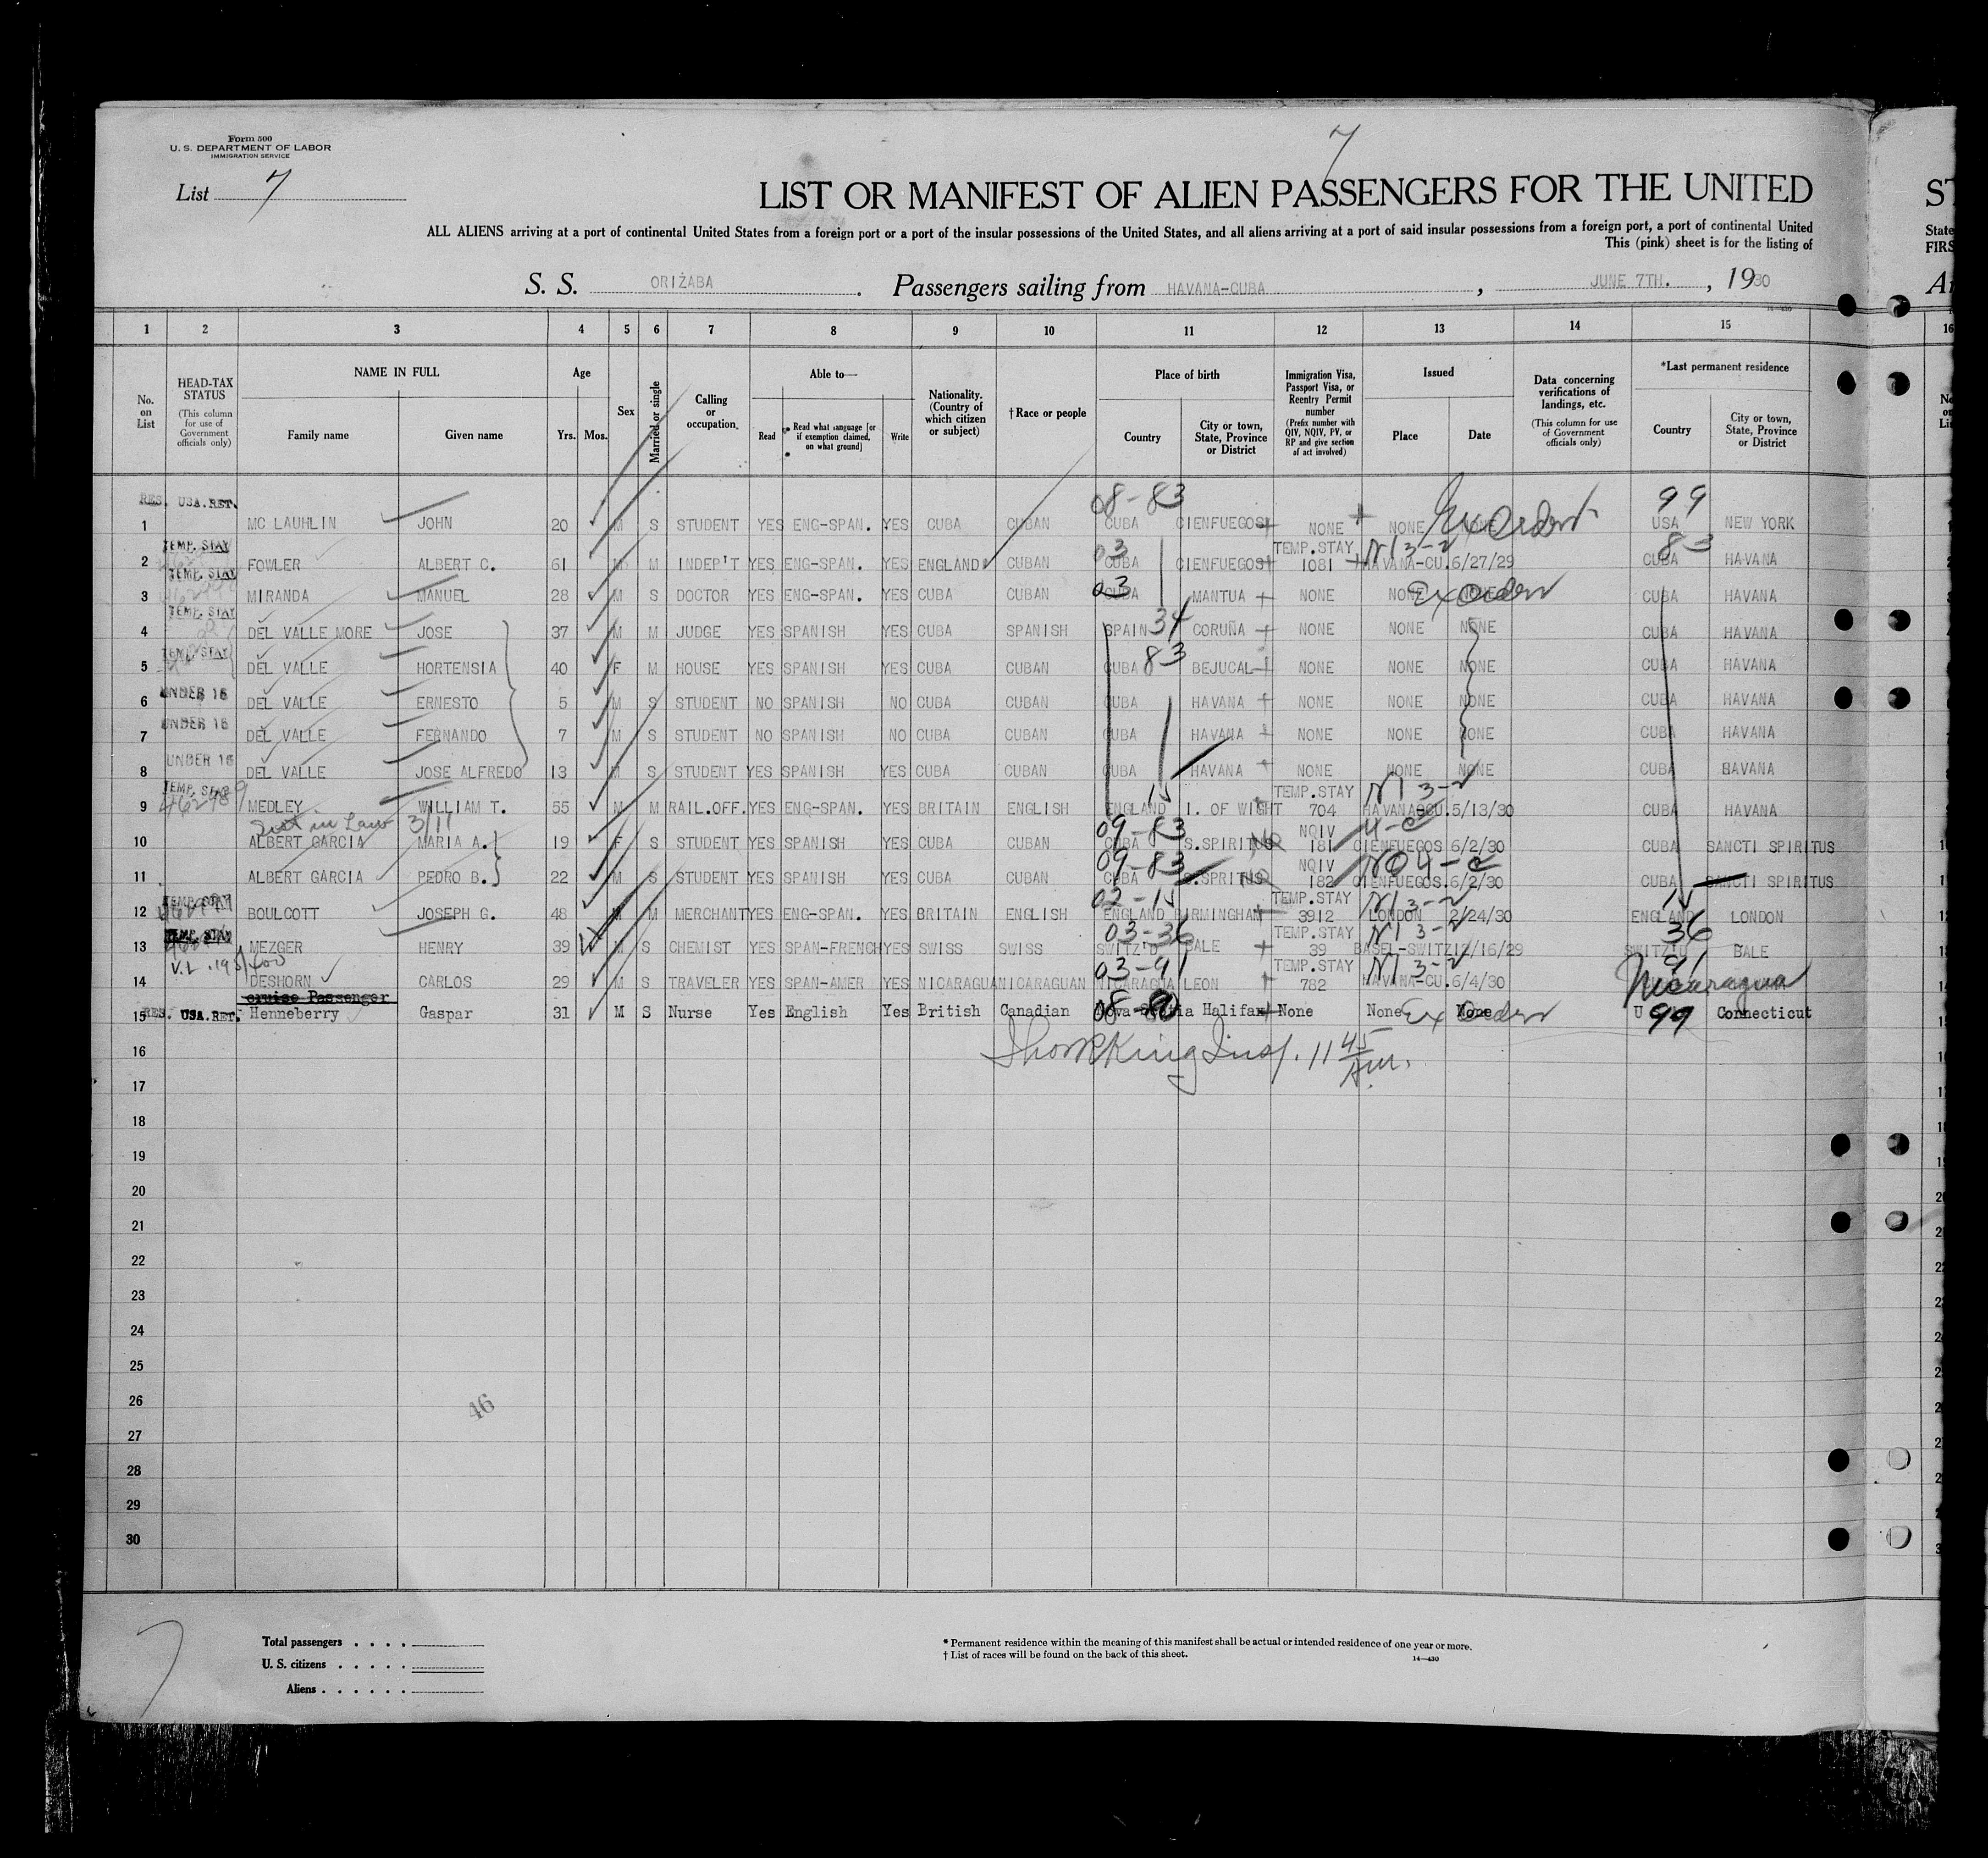 Form 500
U. S. DEPARTMENT OF LABOR
IMMIGRATION SERVICE
7
List 7
LIST OR MANIFEST OF ALIEN PASSENGERS FOR THE UNITED ST
ALL ALIENS arriving at a port of continental United States from a foreign port or a port of the insular possessions of the United States, and all aliens arriving at a port of said insular possessions from a foreign port, a port of continental United State
This (pink) sheet is for the listing of FIRS
S. S. ORIZABA. Passengers sailing from HAVANA-CUBA, JUNE 7TH., 1930
14-430
1 2 3 4 5 6 7 8 9 10 11 12 13 14 15 16
No. on List
HEAD-TAX STATUS (This column for use of Government officials only)
NAME IN FULL Family name Given name
Age Yrs. Mos.
Sex
Married or single
Calling or occupation
Able to— Read Read what language [or if exemption claimed, on what ground] Write
Nationality. (Country of which citizen or subject)
†Race or people
Place of birth Country City or town, State, Province or District
Immigration Visa, Passport Visa, or Reentry Permit number (Prefix number with QIV, NQIV, PV, or RP and give section of act involved)
Issued Place Date
Data concerning verifications of landings, etc. (This column for use of Government officials only)
*Last permanent residence Country City or town, State, Province or District
RES. USA.RET. 08-83 99
1 MC LAUHLIN JOHN 20 M S STUDENT YES ENG-SPAN. YES CUBA CUBAN CUBA CIENFUEGOS NONE NONE NONE USA NEW YORK
TEMP. STAY 03 TEMP.STAY N13-2 83
2 FOWLER ALBERT C. 61 M M INDEP'T YES ENG-SPAN. YES ENGLAND CUBAN CUBA CIENFUEGOS 1081 HAVANA-CU. 6/27/29 CUBA HAVANA
TEMP. STAY 03 Ex Orden
3 MIRANDA MANUEL 28 M S DOCTOR YES ENG-SPAN. YES CUBA CUBAN CUBA MANTUA NONE NONE NONE CUBA HAVANA
TEMP. STAY 34
4 DEL VALLE MORE JOSE 37 M M JUDGE YES SPANISH YES CUBA SPANISH SPAIN CORUÑA NONE NONE NONE CUBA HAVANA
TEMP. STAY 83
5 DEL VALLE HORTENSIA 40 F M HOUSE YES SPANISH YES CUBA CUBAN CUBA BEJUCAL NONE NONE NONE CUBA HAVANA
UNDER 16
6 DEL VALLE ERNESTO 5 M S STUDENT NO SPANISH NO CUBA CUBAN CUBA HAVANA NONE NONE NONE CUBA HAVANA
UNDER 16
7 DEL VALLE FERNANDO 7 M S STUDENT NO SPANISH NO CUBA CUBAN CUBA HAVANA NONE NONE NONE CUBA HAVANA
UNDER 16
8 DEL VALLE JOSE ALFREDO 13 M S STUDENT YES SPANISH YES CUBA CUBAN CUBA HAVANA NONE NONE NONE CUBA BAVANA
TEMP. STAY 15 TEMP.STAY N13-2
9 MEDLEY WILLIAM T. 55 M M RAIL.OFF. YES ENG-SPAN. YES BRITAIN ENGLISH ENGLAND I. OF WIGHT 704 HAVANA-CU. 5/13/30 CUBA HAVANA
3/11 09-83 NQIV 4-C
10 ALBERT GARCIA MARIA A. 19 F S STUDENT YES SPANISH YES CUBA CUBAN CUBA S.SPIRITUS 181 CIENFUEGOS 6/2/30 CUBA SANCTI SPIRITUS
09-83 NQIV NO4-C
11 ALBERT GARCIA PEDRO B. 22 M S STUDENT YES SPANISH YES CUBA CUBAN CUBA S.SPRITUS 182 CIENFUEGOS. 6/2/30 CUBA SANCTI SPIRITUS
TEMP. STAY 02-15 TEMP.STAY N13-2 15
12 BOULCOTT JOSEPH G. 48 M M MERCHANT YES ENG-SPAN. YES BRITAIN ENGLISH ENGLAND BIRMINGHAM 3912 LONDON 2/24/30 ENGLAND LONDON
TEMP. STAY 03-36 TEMP.STAY N13-2 36
13 MEZGER HENRY 39 M S CHEMIST YES SPAN-FRENCH YES SWISS SWISS SWITZ'D BALE 39 BASEL-SWITZ 12/16/29 SWITZ'D BALE
03-91 TEMP.STAY N13-2 91
14 DESHORN CARLOS 29 M S TRAVELER YES SPAN-AMER YES NICARAGUA NICARAGUAN NICARAGUA LEON 782 HAVANA-CU. 6/4/30 Nicaragua
cruise Passenger
15 RES. USA.RET. Henneberry Gaspar 31 M S Nurse Yes English Yes British Canadian Nova Scotia Halifax None None Ex Orden None U 99 Connecticut
16 11 45 Am.
17
18
19
20
21
22
23
24
25
26
27
28
29
30
46
7
Total passengers . . . .
U. S. citizens . . . . .
Aliens . . . . . .
* Permanent residence within the meaning of this manifest shall be actual or intended residence of one year or more.
† List of races will be found on the back of this sheet.
14—430